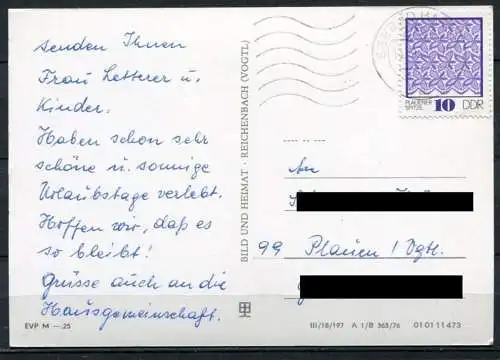 senden Ihnen
Frau Letterer u.
Kinder.
Haben schon sehr
schöne u. sonnige
Urlaubstage verlebt.
Hoffen wir, daß es
so bleibt!
Grüsse auch an die
Hausgemeinschaft.
EVP M —.25
BILD UND HEIMAT · REICHENBACH (VOGTL)
PLAUENER
SPITZE
10 DDR
An
99 Plauen / Vgtl.
III/18/197 A 1/B 363/76 010111473